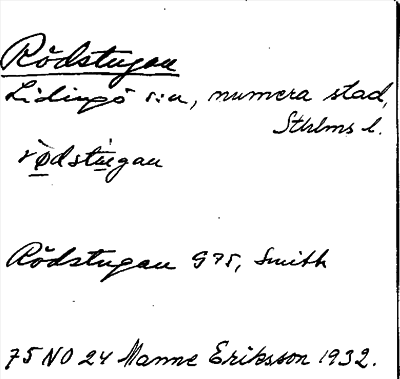 Rödstugan
Lidingö s:n, numera stad,
Sthlms l.
rø̀dstùgan
Rödstugan G75, Smith
75 NO 24 Manne Eriksson 1932.